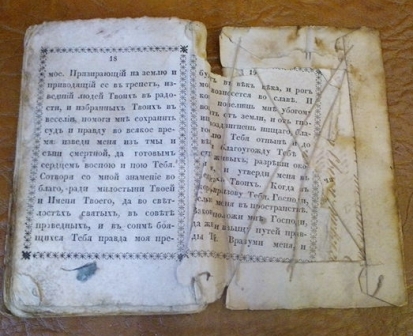 18
мое. Призирающій на землю и
приводящій ее въ трепетъ, из-
ведшій людей Твоихъ въ радо-
сти, и избранныхъ Твоихъ въ
веселіи, помоги мнѣ сохранить
судъ и правду во всякое вре-
мя: изведи меня изъ тмы и
сѣни смертной, да готовымъ
сердцемъ воспою и пою Тебѣ.
Сотвори со мной знаменіе во
благо, ради милостыни Твоей
и Имени Твоего, да во свѣт-
лостехъ святыхъ, въ совѣтѣ
праведныхъ, и въ сонмѣ боя-
щихся Тебя правда моя пре-
въ вѣкъ вѣка, и рогъ
вознесется во славѣ. И
повелишь мнѣ убогому
отъ земли, и отъ
нищаго, бла-
Тобю отнынѣ и до
благоугожду Тебѣ
живыхъ; разрѣши
и утверди меня въ
Твоихъ. Когда въ
Тебя, Господи,
меня въ пространствѣ.
мнѣ Господи,
языцу путей прав-
ды Вразуми меня, и